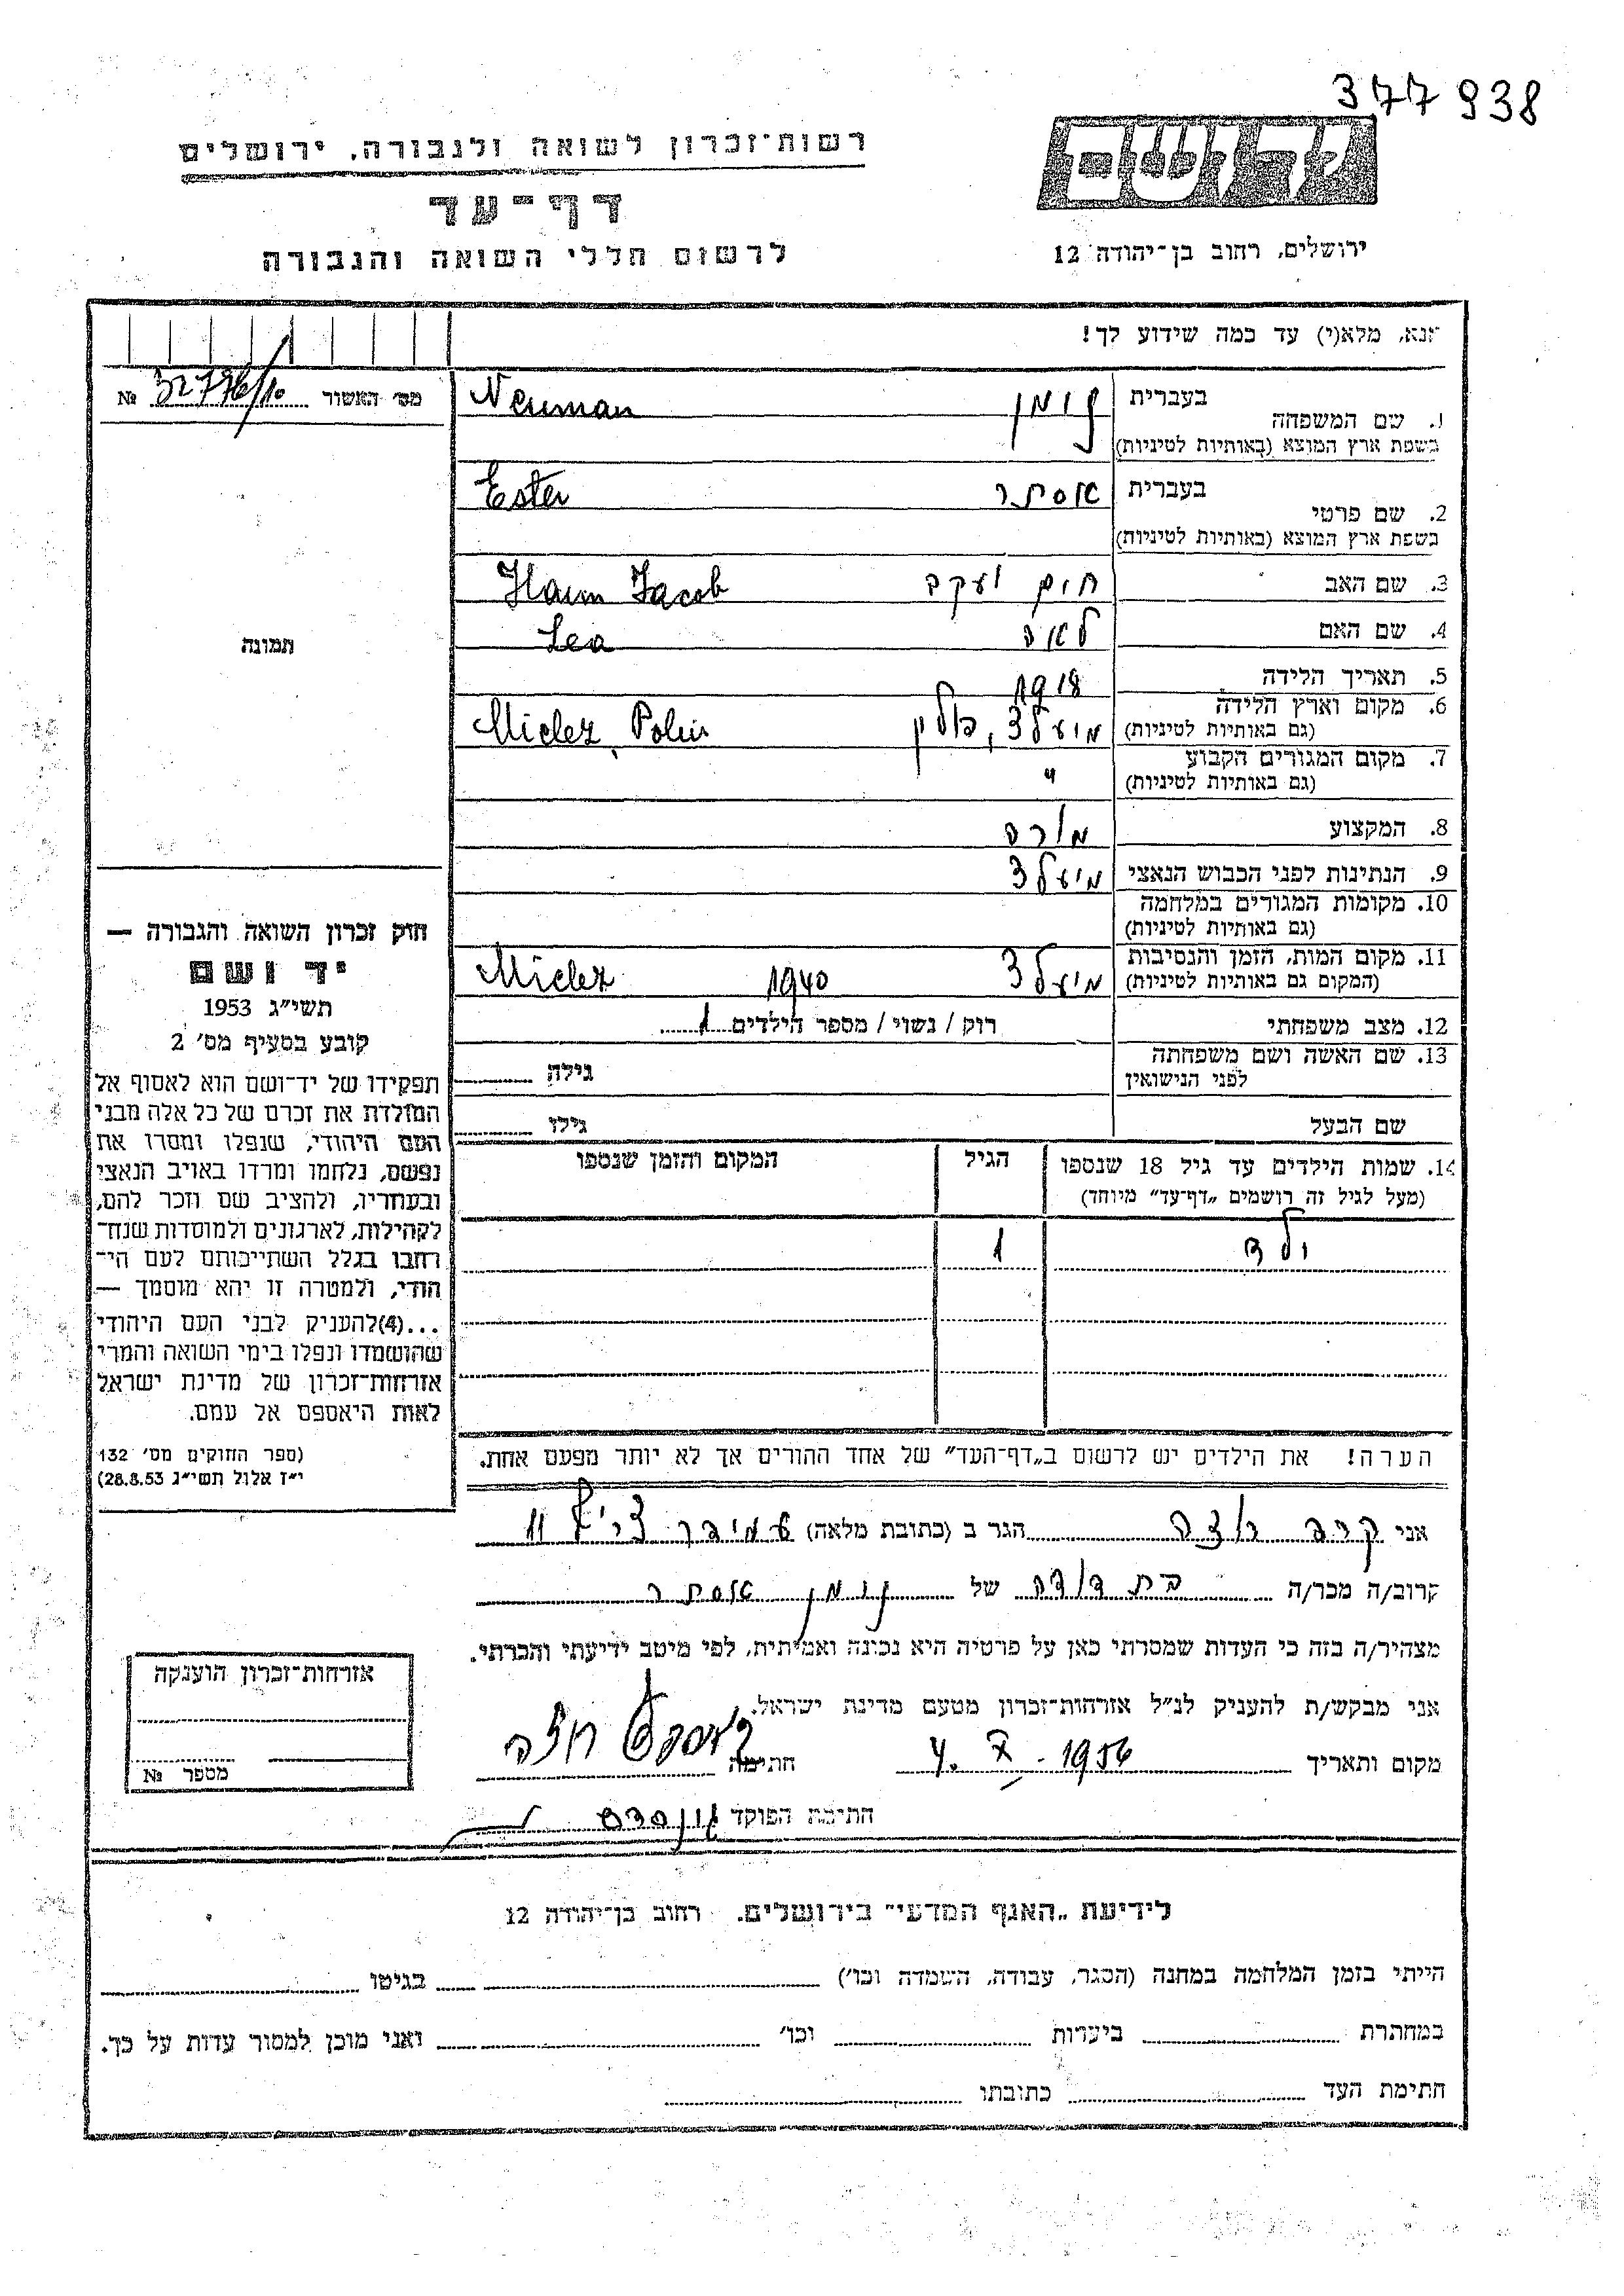 377938
רשות־זכרון לשואה ולגבורה, ירושלים
דף־עד
לרשום חללי השואה והגבורה
יד ושם
ירושלים, רחוב בן־יהודה 12
אנא, מלא(י) עד כמה שידוע לך!
מס׳ האשור 32776/10 №
תמונה
1. שם המשפחה בעברית נוימן Neuman
בשפת ארץ המוצא (באותיות לטיניות)
2. שם פרטי בעברית אסתר Ester
בשפת ארץ המוצא (באותיות לטיניות)
3. שם האב חיים יעקב Haim Jacob
4. שם האם לאה Lea
5. תאריך הלידה 1918
6. מקום וארץ הלידה מיעלץ, פולין Mielez, Polin
(גם באותיות לטיניות)
7. מקום המגורים הקבוע "
(גם באותיות לטיניות)
8. המקצוע מורה
9. הנתינות לפני הכבוש הנאצי מיעלץ
10. מקומות המגורים במלחמה
(גם באותיות לטיניות)
11. מקום המות, הזמן והנסיבות מיעלץ 1940 Mielez
(המקום גם באותיות לטיניות)
12. מצב משפחתי רוק / נשוי / מספר הילדים 1
13. שם האשה ושם משפחתה גילה
לפני הנישואין
שם הבעל גילו
14. שמות הילדים עד גיל 18 שנספו הגיל המקום והזמן שנספו
(מעל לגיל זה רושמים „דף־עד" מיוחד)
ילד 1
הערה! את הילדים יש לרשום ב„דף־העד" של אחד ההורים אך לא יותר מפעם אחת.
חוק זכרון השואה והגבורה —
יד ושם
תשי״ג 1953
קובע בסעיף מס׳ 2
תפקידו של יד־ושם הוא לאסוף אל
המולדת את זכרם של כל אלה מבני
העם היהודי, שנפלו ומסרו את
נפשם, נלחמו ומרדו באויב הנאצי
ובעוזריו, ולהציב שם וזכר להם,
לקהילות, לארגונים ולמוסדות שנח־
רבו בגלל השתייכותם לעם הי־
הודי, ולמטרה זו יהא מוסמך —
...(4) להעניק לבני העם היהודי
שהושמדו ונפלו בימי השואה והמרי
אזרחות־זכרון של מדינת ישראל
לאות היאספם אל עמם.
(ספר החוקים מס׳ 132
י״ז אלול תשי״ג 28.8.53)
אני הגר ב (כתובת מלאה) 11
קרוב/ה מכר/ה בת דודה של נוימן אסתר
מצהיר/ה בזה כי העדות שמסרתי כאן על פרטיה היא נכונה ואמיתית, לפי מיטב ידיעתי והכרתי.
אני מבקש/ת להעניק לנ״ל אזרחות־זכרון מטעם מדינת ישראל.
מקום ותאריך 1956 חתימה
חתימת הפוקד
אזרחות־זכרון הוענקה
מספר №
לידיעת „האגף המדעי" בירושלים. רחוב בן־יהודה 12
הייתי בזמן המלחמה במחנה (הסגר, עבודה, השמדה וכו׳) בגיטו
במחתרת ביערות וכו׳ ואני מוכן למסור עדות על כך.
חתימת העד כתובתו